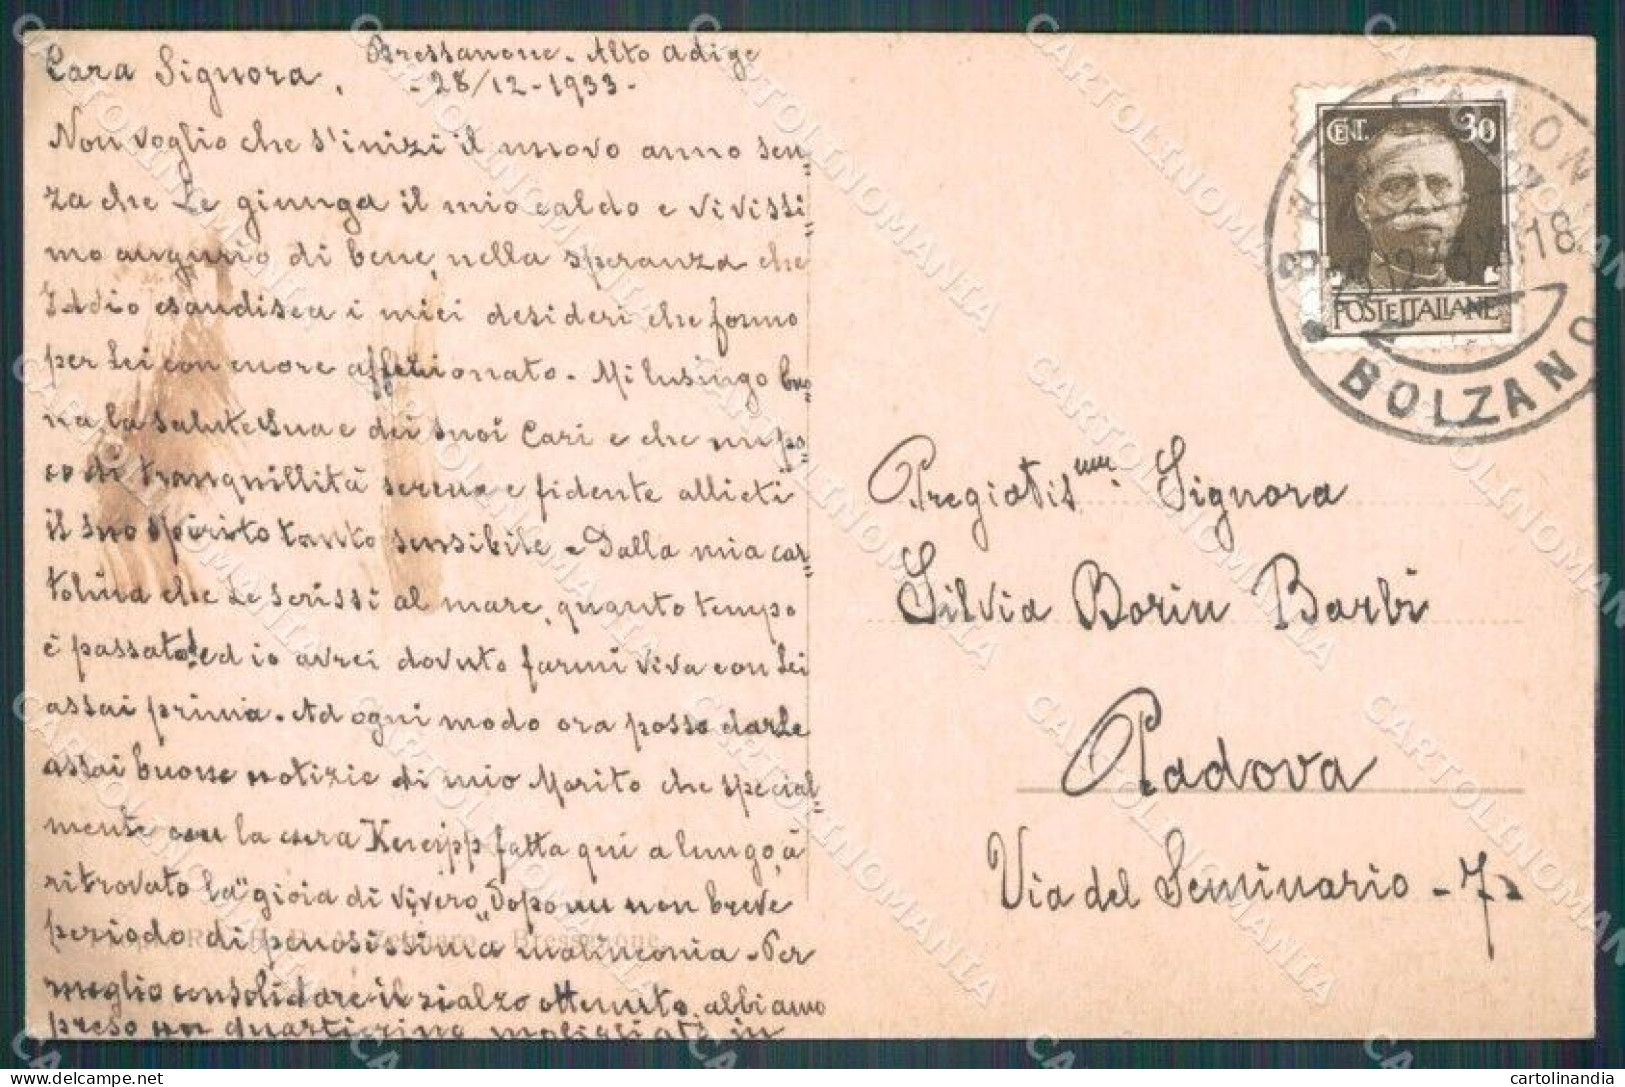 Bressanone - Alto Adige
Cara Signora, - 28/12 - 1933 -
Non voglio che s'inizi il nuovo anno sen=
za che Le giunga il mio caldo e vivissi=
mo augurio di bene, nella speranza che
Iddio esaudisca i miei desideri che formo
per Lei con cuore affezionato. Mi lusingo buo=
na la salute Sua e dei suoi Cari e che un po=
co di tranquillità serena e fidente allieti
il suo spirito tanto sensibile. - Dalla mia car=
tolina che Le scrissi al mare, quanto tempo
è passato! ed io avrei dovuto farmi viva con Lei
assai prima. - Ad ogni modo ora posso darLe
assai buone notizie di mio Marito che special=
mente con la cura Kneipp fatta qui a lungo, à
ritrovato la "gioia di vivere" Dopo un non breve
periodo di penosissima malinconia - Per
meglio consolidare il rialzo ottenuto, abbiamo
preso un quartierino in
CENT. 30
POSTE ITALIANE
BRESSANONE
18
BOLZANO
Pregiatis.ma Signora
Silvia Borin Barbi
Padova
Via del Seminario - 7
Bressanone
CARTOLINOMANIA
cartolinandia